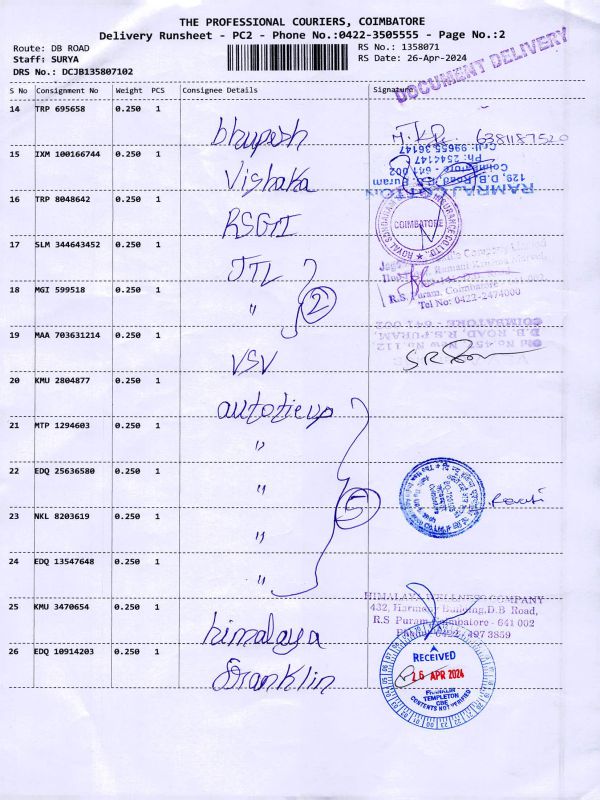 THE PROFESSIONAL COURIERS, COIMBATORE
Delivery Runsheet - PC2 - Phone No.:0422-3505555 - Page No.:2
Route: DB ROAD
RS No.: 1358071
Staff: SURYA
RS Date: 26-Apr-2024
DRS No.: DCJB135807102
DOCUMENT DELIVERY
S No Consignment No Weight PCS Consignee Details Signature
14 TRP 695658 0.250 1 bhupesh
6381187520
15 IXM 100166744 0.250 1 Vishaka
Cell: 99655 36147
Ph: 2541147
Coimbatore - 641 002
129, D.B. Road, R.S. Puram
RAMRAJ COTTON
16 TRP 8048642 0.250 1 RSGI
COIMBATORE
17 SLM 344643452 0.250 1 JTL
18 MGI 599518 0.250 1 " 2
R.S. Puram, Coimbatore
Tel No: 0422-2474000
19 MAA 703631214 0.250 1 VSV
COIMBATORE - 641 002
D.B. ROAD, R.S.PURAM,
20 KMU 2804877 0.250 1 autotieup
21 MTP 1294603 0.250 1 "
22 EDQ 25636580 0.250 1 " 5
Revati
23 NKL 8203619 0.250 1 "
24 EDQ 13547648 0.250 1 "
25 KMU 3470654 0.250 1 himalaya
HIMALAYA WELLNESS COMPANY
432, Harmony Building, D.B Road,
R.S Puram, Coimbatore - 641 002
Phone: 0422 - 4973859
26 EDQ 10914203 0.250 1 Franklin
RECEIVED
26 APR 2024
FRANKLIN
TEMPLETON
CBE
CONTENTS NOT VERIFIED